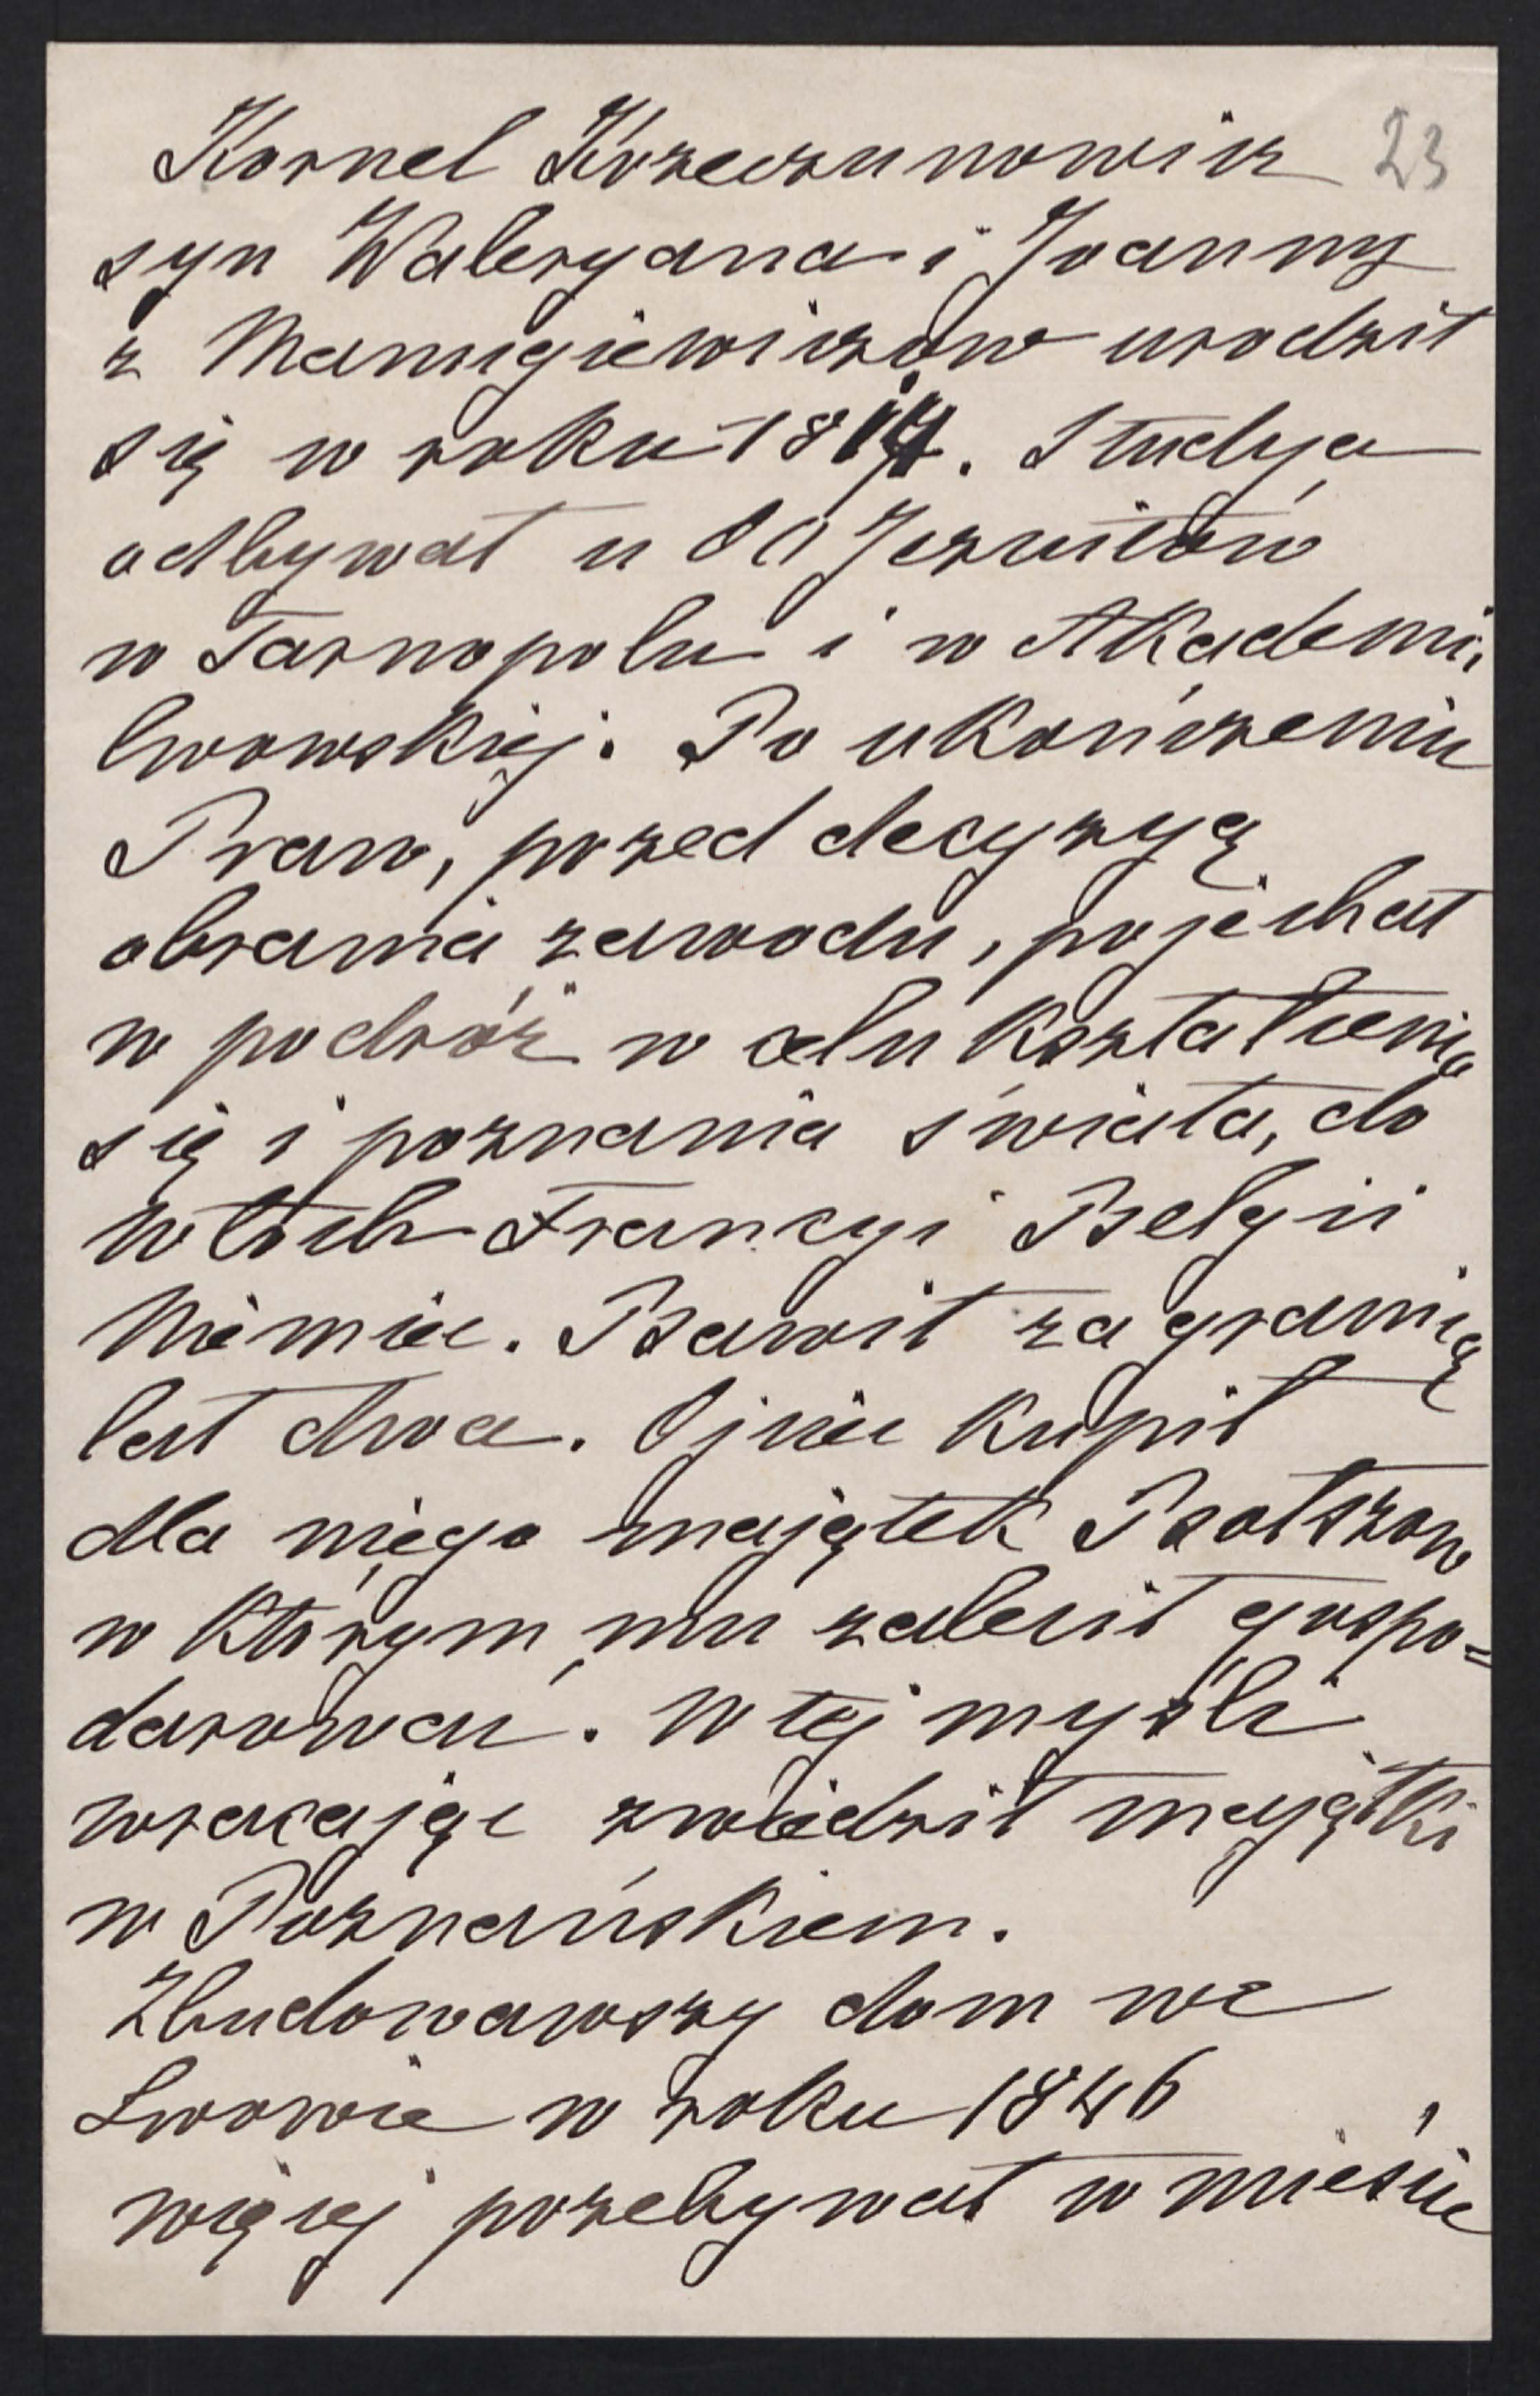 Kornel Krzeczunowicz 23
syn Waleryana i Joanny
z Manugiewiczów urodził
się w roku 18. Studya
odbywał u OO Jezuitów
w Tarnopolu i w Akademii
lwowskiej. Po ukończeniu
Praw, przed decyzyą
obrania zawodu, pojechał
w podróż w celu kształcenia
się i poznania świata, do
Włoch Francyi Belgii
Niemiec. Bawił za granicą
lat dwa. Ojciec kupił
dla niego majątek Bołszow
w którym mu zalecił gospo=
darować. W tej myśli
wracając zwiedził majątki
w Poznańskiem.
Zbudowawszy dom we
Lwowie w roku 1846
więcej przebywał w mieście